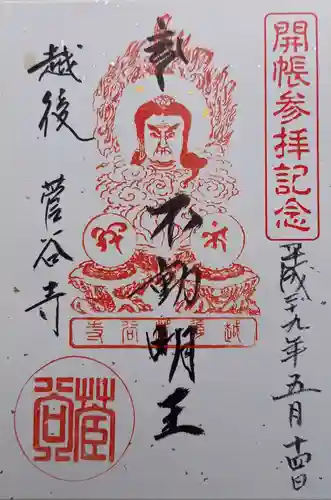 開帳参拝記念
平成二九年五月十四日
奉
不動明王
越後 菅谷寺
越後菅谷寺